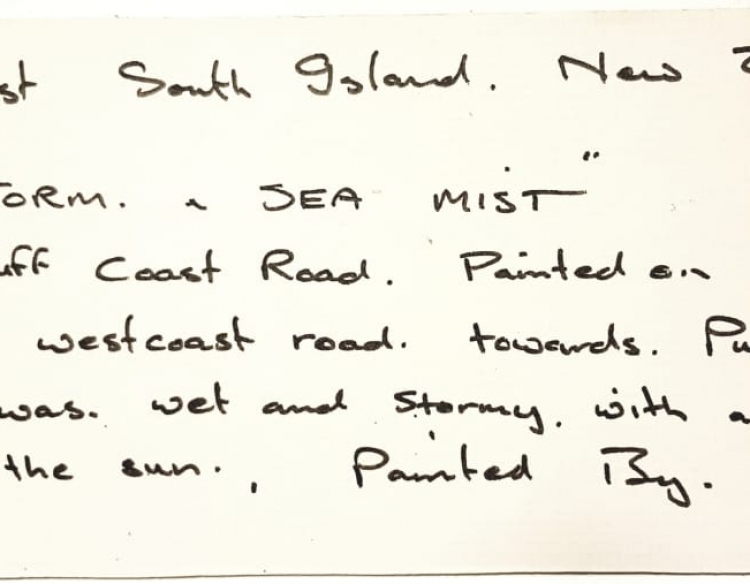 st South Island. New Z
TORM. & SEA MIST"
uff Coast Road. Painted on
westcoast road. towards. Pu
was. wet and stormy. with a
the sun. Painted By.